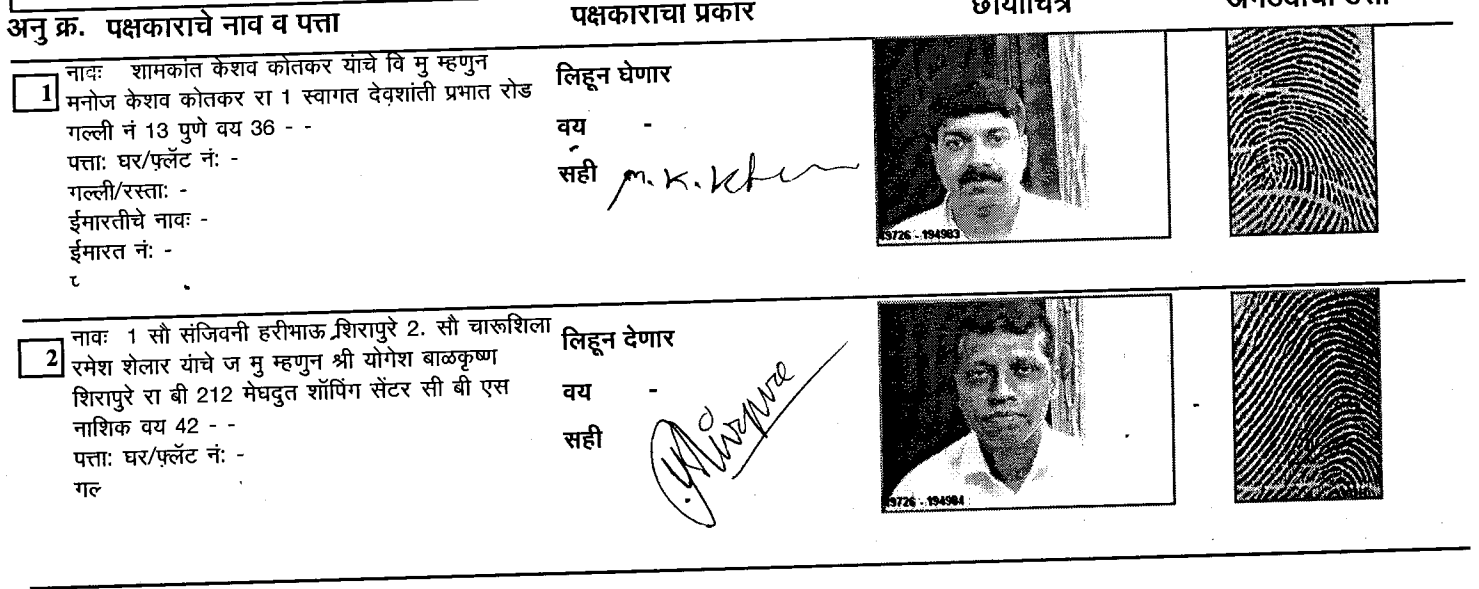 अनु क्र. पक्षकाराचे नाव व पत्ता पक्षकाराचा प्रकार छायाचित्र
1 नावः शामकांत केशव कोतकर यांचे वि मु म्हणुन लिहून घेणार
मनोज केशव कोतकर रा 1 स्वागत देवशांती प्रभात रोड
गल्ली नं 13 पुणे वय 36 - - वय -
पत्ताः घर/फ़्लॅट नंः -
गल्ली/रस्ताः - सही M. K.
ईमारतीचे नावः -
ईमारत नंः -
19726 - 194983
2 नावः 1 सौ संजिवनी हरीभाऊ शिरापुरे 2. सौ चारूशिला लिहून देणार
रमेश शेलार यांचे ज मु म्हणुन श्री योगेश बाळकृष्ण
शिरापुरे रा बी 212 मेघदुत शॉपिंग सेंटर सी बी एस वय -
नाशिक वय 42 - - सही
पत्ताः घर/फ़्लॅट नंः -
गल
19726 - 194984